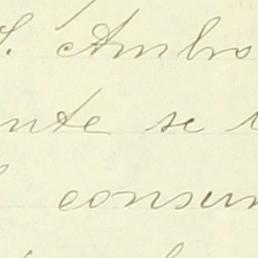 S. Ambro
nte se
consum